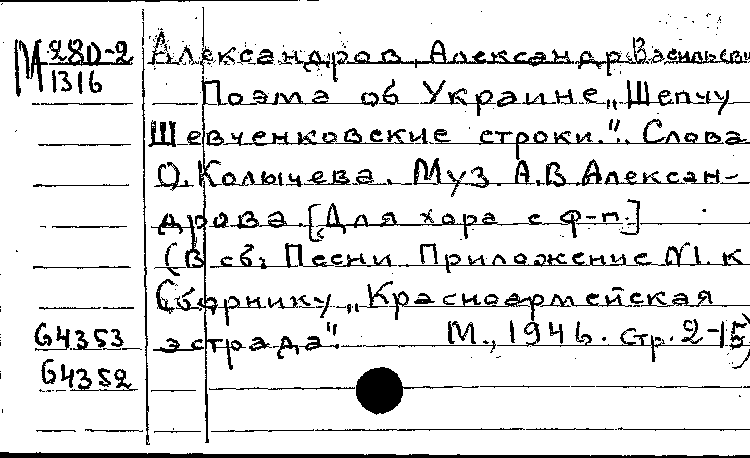 М 280-2 Александров, Александр Васильеви
1316
Поэма об Украине „Шепчу
Шевченковские строки.". Слова
О. Колычева. Муз. А.В. Алексан-
дрова. [Для хора с ф-п.]
(В сб: Песни. Приложение №1. к
Сборнику „Красноармейская
64353 эстрада". М., 1946. Стр. 2-15)
64352